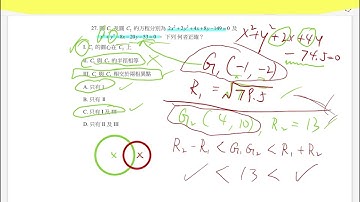 27. 圓 C₁ 及圓 C₂ 的方程分別為 2x²+2y²+4x+8y−149=0 及
x²+y²−8x−20y−53=0 下列何者正確？
I. C₁ 的圓心在 C₂ 上
II. C₁ 與 C₂ 的半徑相等
III. C₁ 與 C₂ 相交於兩相異點
A. 只有 I
B. 只有 II
C. 只有 I 及 III
D. 只有 II 及 III
x²+y²+2x+4y
−74.5=0
G₁(−1,−2)
R₁=√79.5
G₂(4,10) R₂=13
R₂−R₁<G₁G₂<R₁+R₂
✓ < 13 < ✓
x x